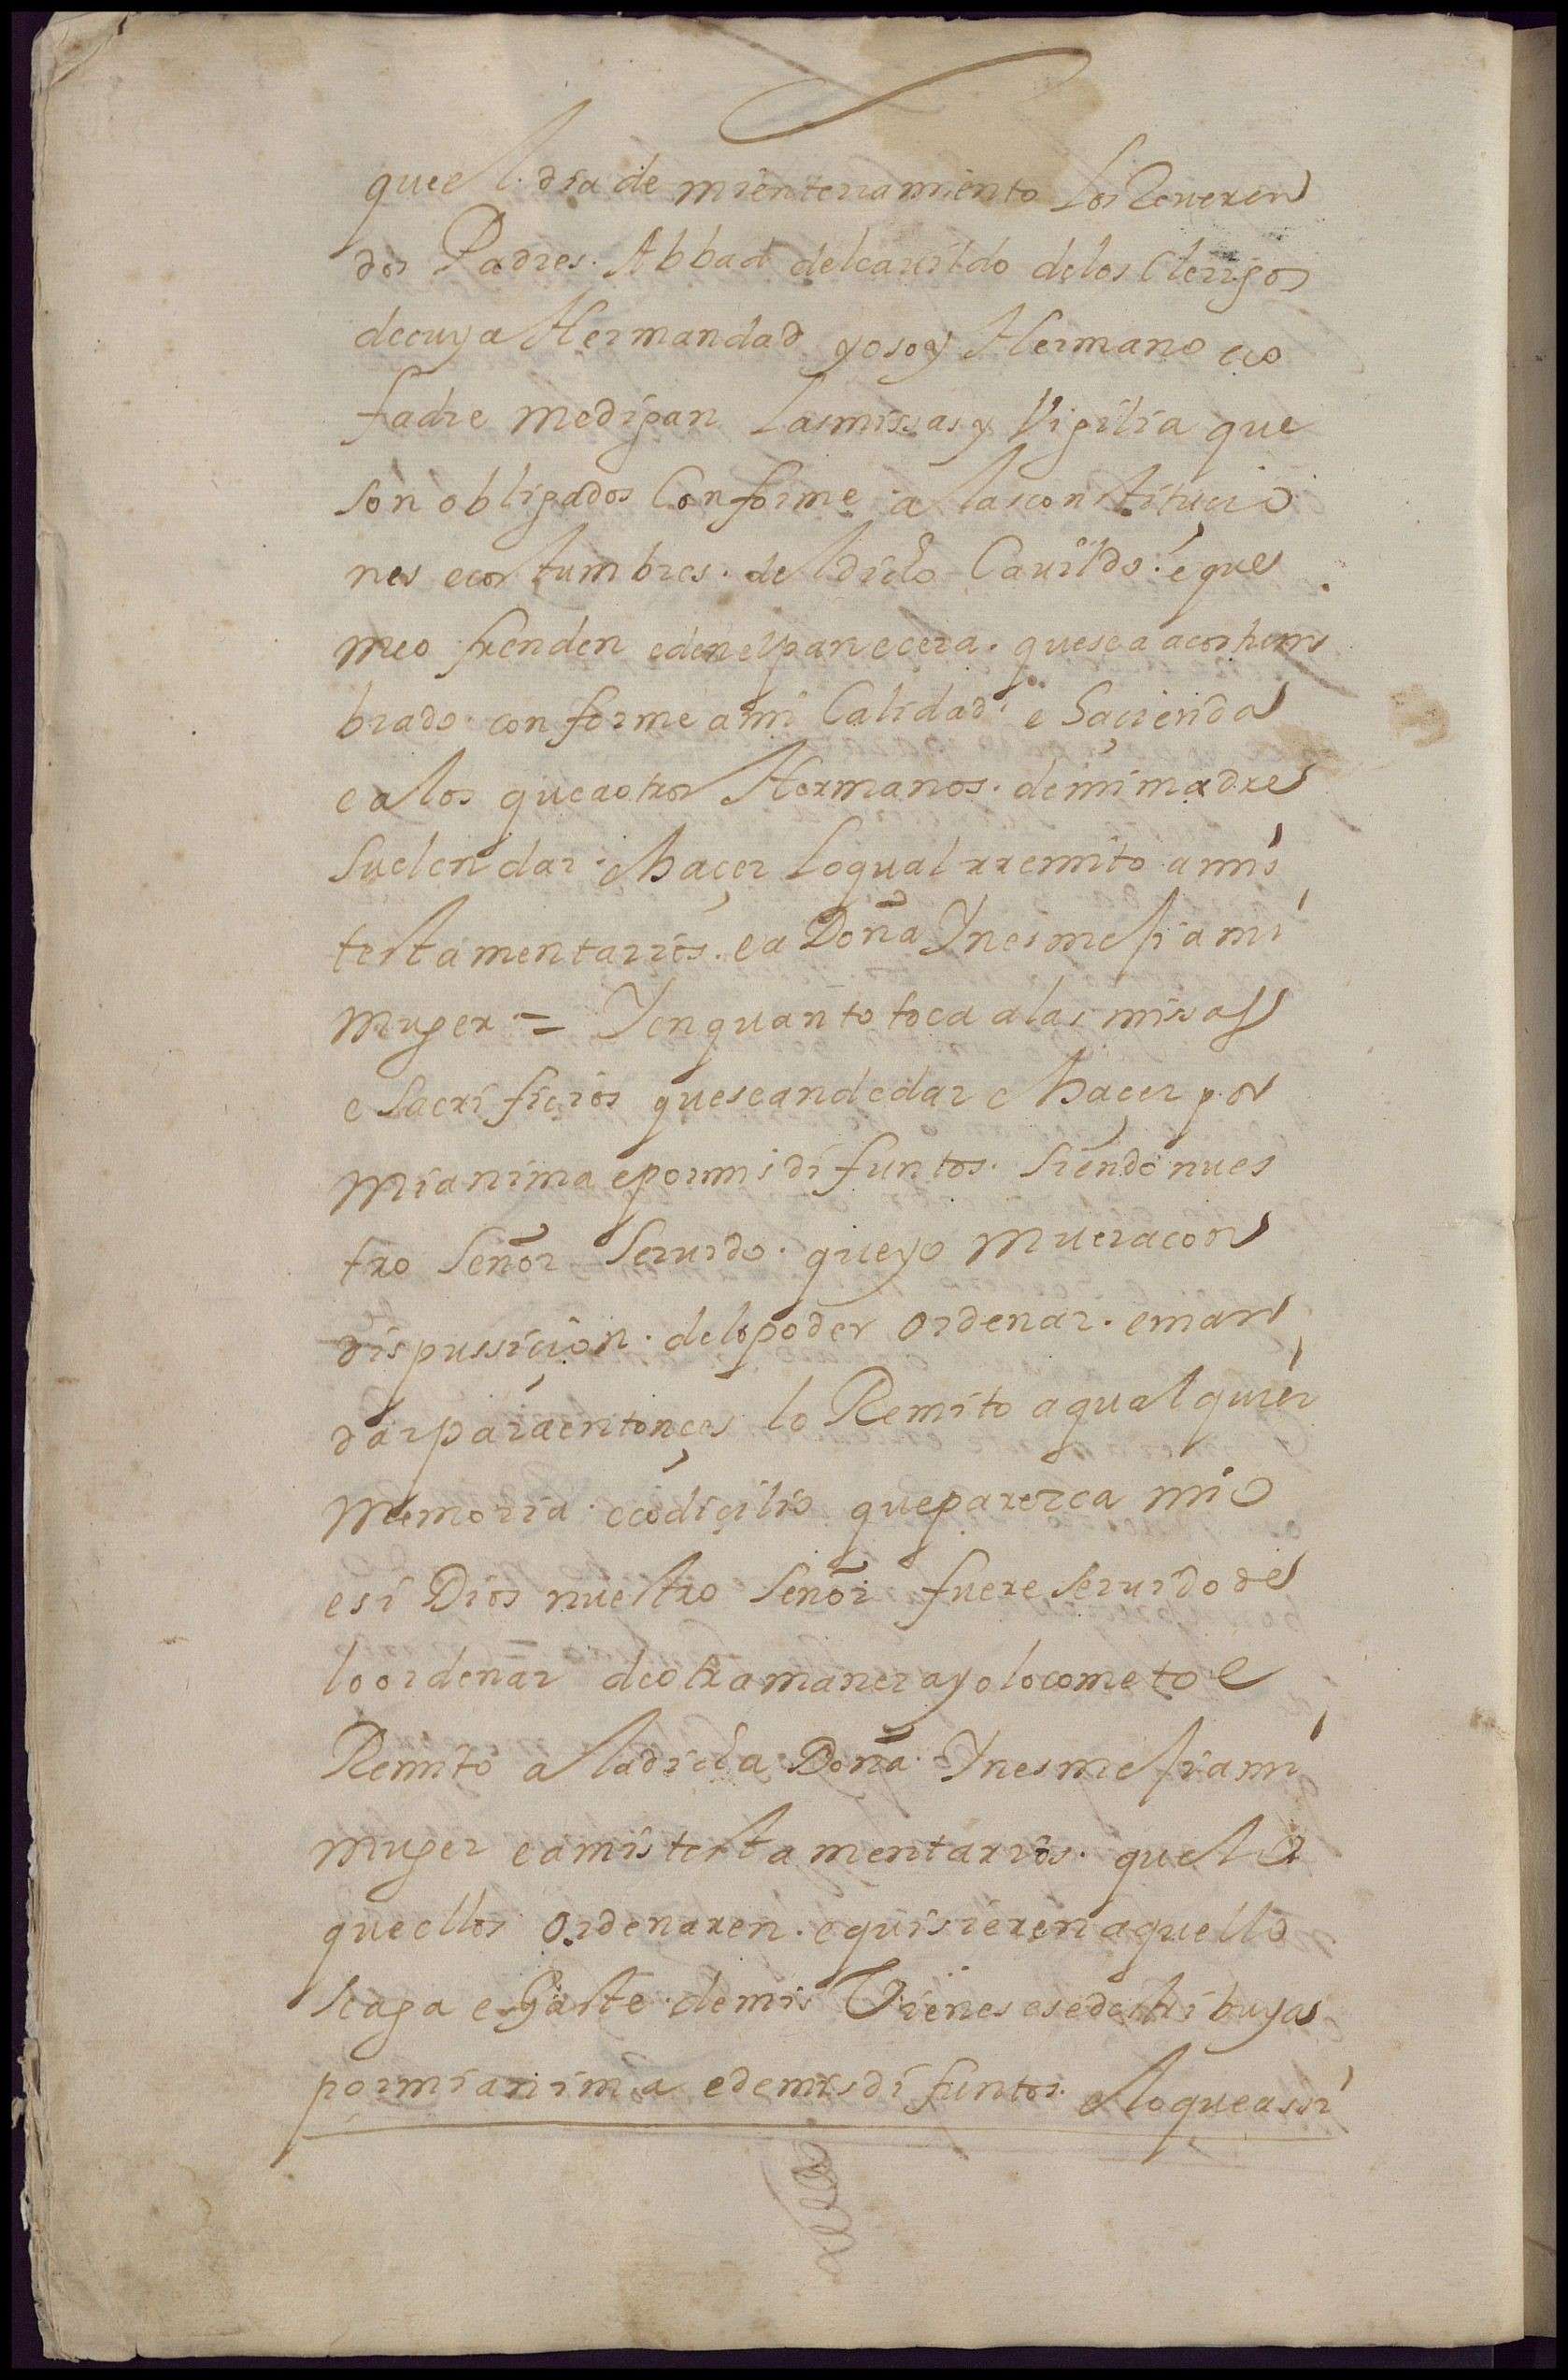 que el dia de mi enterramiento los Reveren
dos Padres Abbad del cavildo de los Clerigos
de cuya Hermandad yo soy Hermano e co
fadre me digan las missas y Vigilia que
son obligados Conforme a las constitucio
nes e costumbres del dicho Cavildo e que
me ofrenden e den el pan e cera que sea acostum
brado conforme a mi Calidad e hacienda
e a los que a otros Hermanos de mi madre
suelen dar e haçer lo qual rremito a mis
testamentarios e a Doña Ynes mesia mi
muger = Y en quanto toca a las missas
e sacrifiçios que se an de dar e haçer por
mi anima e por mis difuntos siendo nues
tro Señor servido que yo muera con
dispussiçion de lo poder ordenar e man
dar para entonçes lo Remito a qualquier
memoria e codiçilio que parezca mio
e si Dios nuestro Señor fuere servido de
lo ordenar de otra manera yo lo cometo e
Remito a la dicha Doña Ynes mesia mi
muger e a mis testamentarios que lo
que ellos ordenaren e quisieren aquello
se aga e Gaste de mis Vienes e se destribuya
por mi anima e de mis difuntos e lo que assi